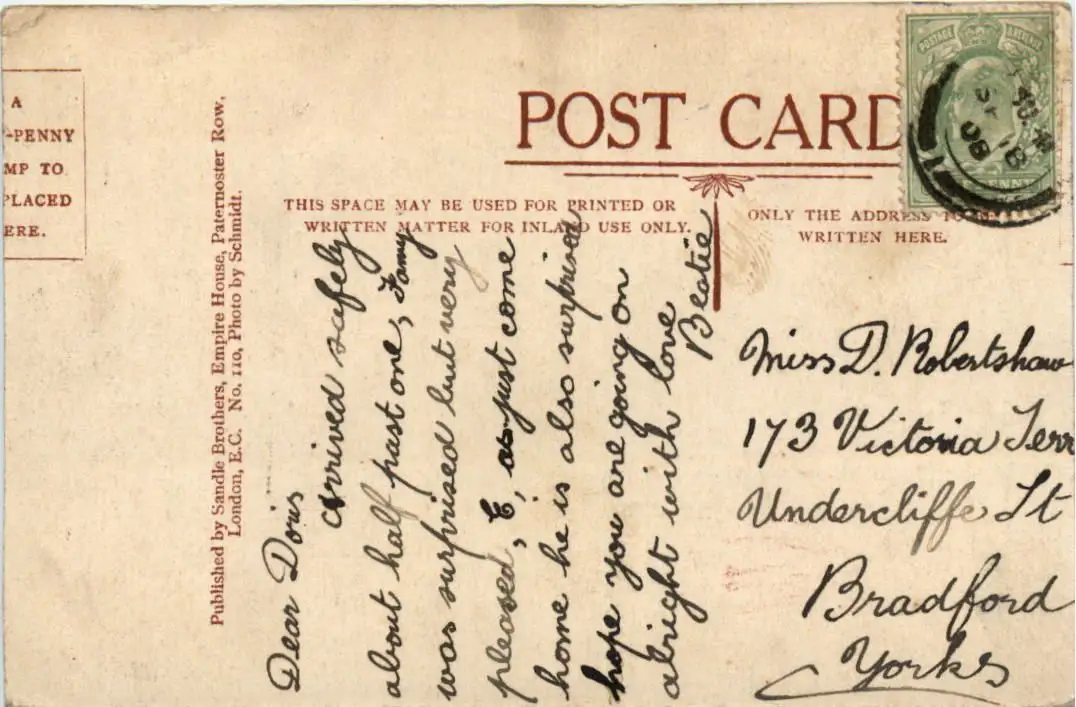 A
-PENNY
MP TO
PLACED
ERE.
Published by Sandle Brothers, Empire House, Paternoster Row,
London, E.C. No. 110, Photo by Schmidt.
POST CARD
THIS SPACE MAY BE USED FOR PRINTED OR
WRITTEN MATTER FOR INLAND USE ONLY.
ONLY THE ADDRESS TO
WRITTEN HERE.
POSTAGE
Dear Doris
arrived safely
about half past one,
was surprised but very
pleased, E, as just come
home he is also surprised
hope you are going on
alright with love
Beatie
Miss D. Robertshaw
173 Victoria Terr
Undercliffe St
Bradford
Yorks